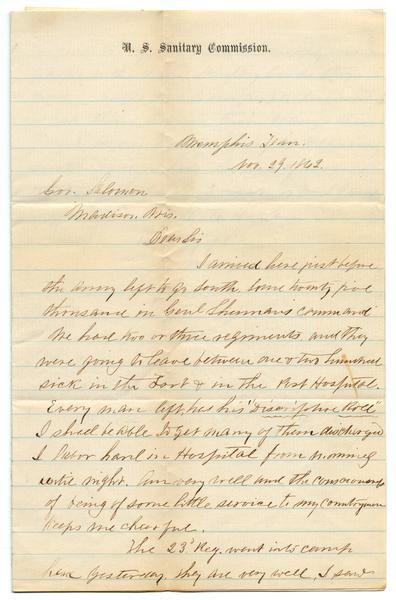 U. S. Sanitary Commission.
Memphis Tenn.
Nov. 29, 1862.
Gov. Salomon
Madison Wis.
Dear Sir
I arrived here just before
the army left to go south some twenty five
thousand in Genl Shermans command
We had two or three regiments and they
were going to leave between one & two hundred
sick in the Fort & in the Post Hospital.
Every man left has his "Discriptive Roll"
I shall be able to get many of them discharged
I labor hard in Hospital from morning
until night. Am very well and the consciousness
of being of some little service to my countrymen
keeps me cheerful.
The 23d Reg. went into camp
here yesterday, they are very well, I saw